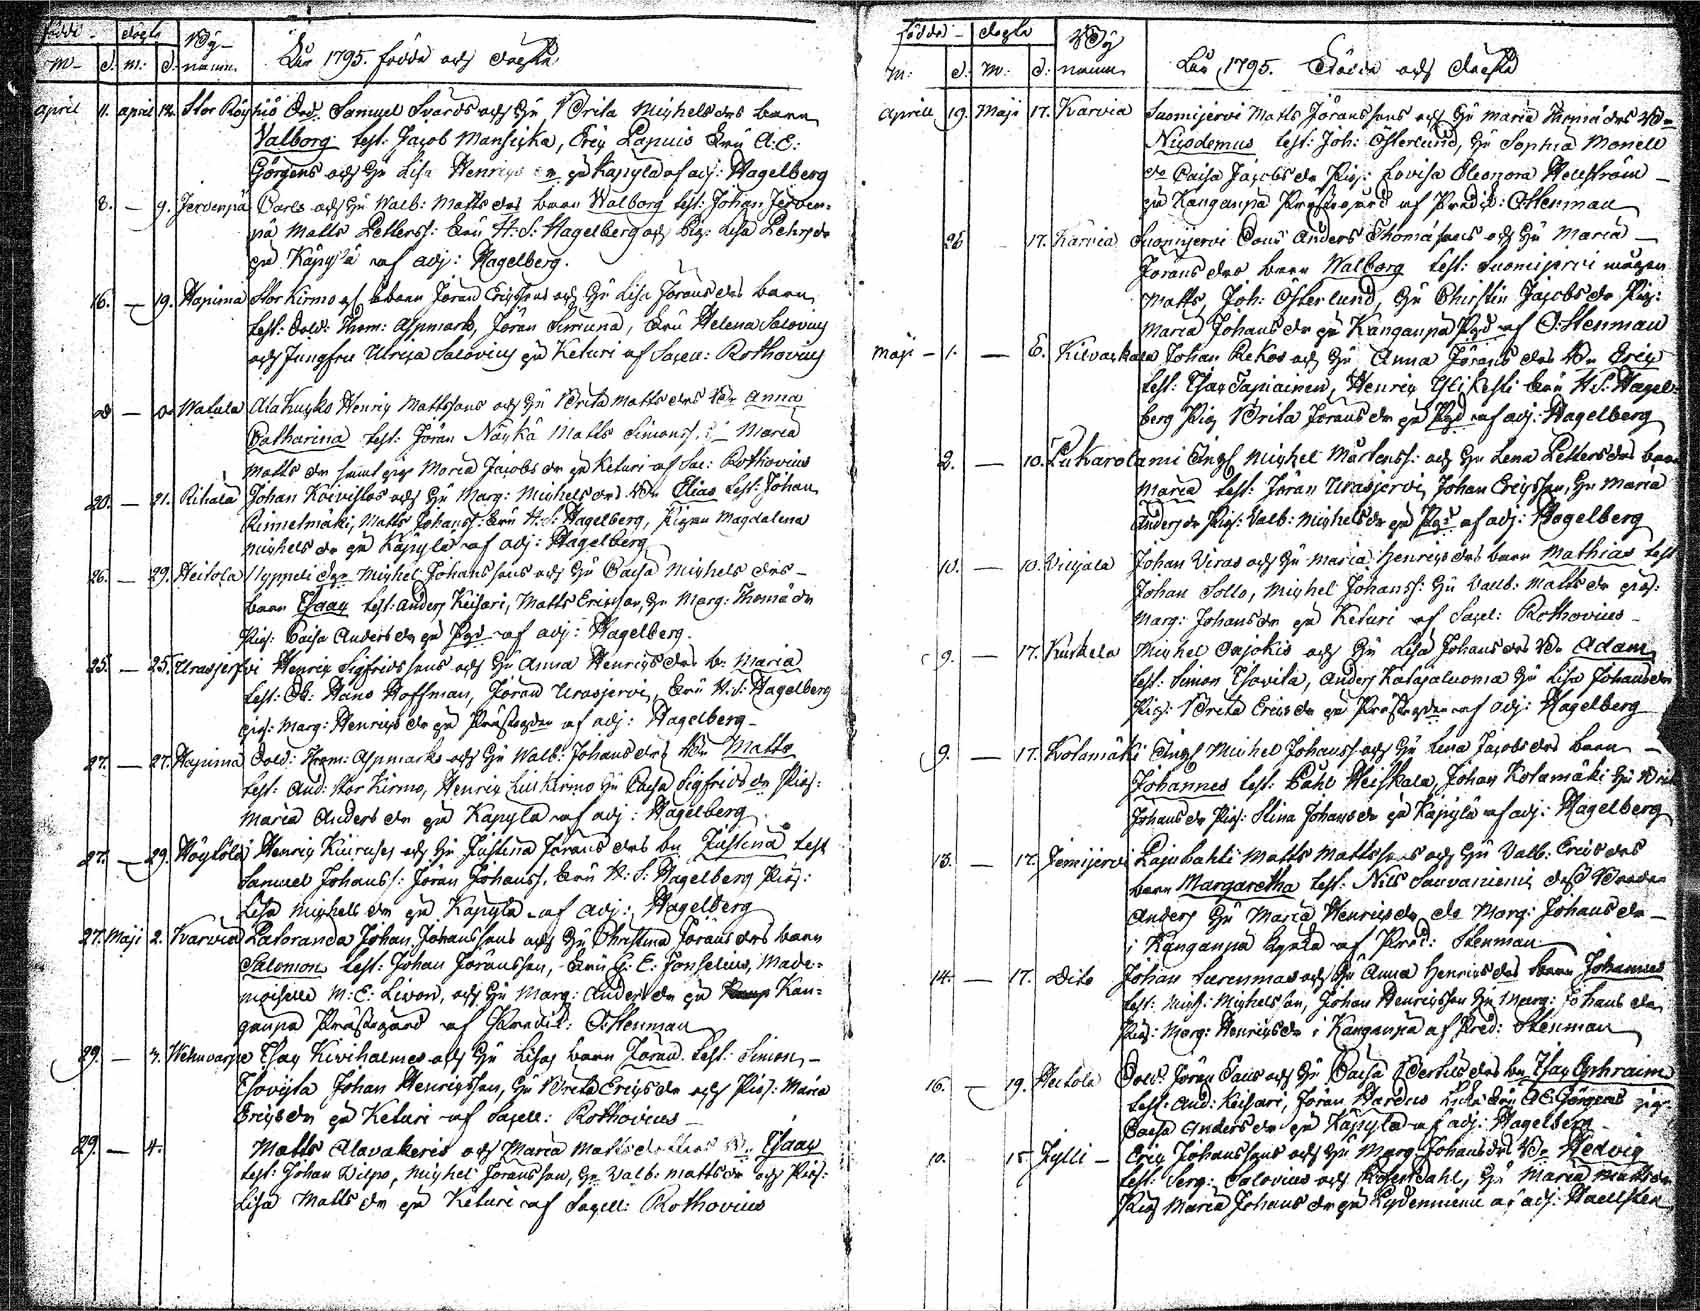 födde döpte By-
M- d. m: d. namn. Åhr 1795. födde och döpte
April 11. April 12. Stor Röyhiö Sold. Samuel Svards och Hu Brita Michelsdrs barn
Valborg test: Jacob Mansicka, Eric Lapuis Fru A: E:
Görgens och Hu Lisa Henrics dr på Käpylä af adj: Hagelberg
8. — 9. Jervenpä Carls och Hu Walb: Matts drs barn Walborg test: Johan Jerven=
pä Matts Petterss: Fru H: S: Hagelberg och Pig: Lisa
på Käpylä af adj: Hagelberg.
16. — 19. Hapima Storkirmo Jöran Ericssons och Hu Lisa Jörans drs barn
test: Sold: Thom: Aspmark, Jöran Simuna, Fru Helena Salovius
och Jungfru Ulrica Salovius på Keturi af Sacell: Rothovius
d — d Watula Alahucko Henric Mattssons och Hu Brita Matts drs Bn Anna
Catharina test: Jöran Näykä Matts Simonss. Maria
Matts dr samt pig Maria Jacobs dr på Keturi af Sac: Rothovius
20. — 21. Rihala Johan Koivistos och Hu Marg: Michels drs Bn Elias test: Johan
Rinnetmäki, Matts Johanss: Fru H: S: Hagelberg, Pigan Magdalena
Michels dr på Käpylä af adj: Hagelberg
26. — 29. Heitola Michel Johanssons och Hu Caisa Michels drs-
barn Esaay test: Anders Keisari, Matts Ericsson, Hu Marg: Thomä dr
Pig: Caisa Anders dr på Pgd af adj: Hagelberg.
25. — 25. Urasjerfvi Henric Sigfridssons och Hu Anna Henrics drs b: Maria
test: Hans Hoffman, Jöran Urasjervi, Fru H: S: Hagelberg
pig: Marg: Henrics dr på Prästegden af adj: Hagelberg-
27. — 27. Hapuma Sold: Thom: Aspmarks och Hu Walb: Johans drs Bn Matts
test: And: Storkirmo, Henric Kirmo Hu Caisa Sigfrids dr Pig:
Maria Anders dr på Käpylä af adj: Hagelberg
27. — 29. Höytölä Henric och Hu Justina Jörans drs bn Justina test
Samuel Johanss: Jöran Johanss. Fru H: S: Hagelberg Pig:
Lisa Michels dr på Käpylä af adj: Hagelberg
27. Maji 2. Karvia Latoranda Johan Johanssons och Hu Christina Jörans drs barn
Salomon test: Johan Jöransson, Fru G: E: Fonselius, Made=
moiselle M: E: Livon, och Hu Marg: Anders dr på Kan=
ganpä Prästegård af Predik: O:Stenman
29. — 3. Wehuvarpe Esay Kivihalmes och Hu Lisas barn Jöran. test: Simon-
Isovista Johan Henricsson, Hu Brita Erics dr och Pig: Maria
Erics dr på Keturi af Sacell: Rothovius
29. — 4. Matts Alavakeris och Maria Matts dotters Bn Esaay
test: Johan Wilpo, Michel Jöransson, Hu Walb: Matts dr och Pig:
Lisa Matts dr på Keturi af Sacell: Rothovius
födde - döpte By
M: d: M: d: namn Åhr 1795. Födde och döpte
Aprill 19. Maji 17. Karvia Suomijervi Matts Jöranssons och Hu Maria Thomä drs Bn
Nicodemus test: Joh: Österlund, Hu Sophia Monell
do Caisa Jacobs dr Pig: Lovisa Eleonora Hellström-
på Kanganpä Prästegård af Predik: O:Stenman
26 17. Karvia Suomijervi Anders Thomäsons och Hu Maria-
Jörans drs barn Walborg test: Suomijervi
Matts, Joh: Österlund, Hu Christin Jacobs dr Pig:
Maria Johans dr på Kanganpä Pgd af O:Stenman
Maji - 1. — 6. Kilvackala Johan Rekos och Hu Anna Jörans drs Bn Eric
test: Esay Tapiainen, Henric Fru H: S: Hagel-
berg Pig Brita Jörans dr på Pgd af adj: Hagelberg
2. — 10. Michel Mårtenss: och Hu Lena Petters drs barn
Maria test: Jöran Urasjervi, Johan Ericsson, Hu Maria
Anders dr Pig: Valb: Michels dr på Pgd af adj: Hagelberg
10. — 10. Johan Viras och Hu Maria Henrics drs barn Mathias test
Johan Sollo, Michel Johanss: Hu Valb: Matts dr pig:
Marg: Johans dr på Keturi af Sacel: Rothovius-
9. — 17. Kurkela Michel Ojokis och Hu Lisa Johans drs Bn Adam
test: Simon Isovita, Anders Katajaluoma Hu Lisa Johans dr
Pig: Brita Erics dr på Prästegden af adj: Hagelberg
9. — 17. Kotamäki Michel Johanss: och Hu Lena Jacobs drs barn-
Johannes test: Påhl Heiskala, Johan Kotamäki Hu Brita
Johans dr Pig: Stina Johans dr på Käpylä af adj: Hagelberg
13. — 17. Jemijervi Lajulahti Matts Mattssons och Hu Valb: Erics drs
barn Margaretha test: Nils dess Broder
Anders Hu Maria Henrics dr do Marg: Johans dr-
i Kanganpä Kyrka af Pred: Stenman
14. — 17. Dito Johan Surenmas och Hu Anna Henrics drs barn Johannes
test: Mich: Michelson, Johan Henricsson Hu Marg: Johans dr
Pig: Marg: Henrics dr i Kanganpä af Pred: Stenman
16. — 19. Heitola Sold: Jöran och Hu Caisa Bertils drs bn Esay Ephraim
test: And: Keisari, Jöran Fru A:E:Görgens pig:
Caisa Anders dr på Käpylä af adj: Hagelberg-
10. 15 Jylli- Eric Johanssons och Hu Marg: Johans drs Bn Hedvig
test: Serg: Salovius och Rosendahl, Hu Maria Matts dr
Pig Maria Johans dr på af adj: Haellsten